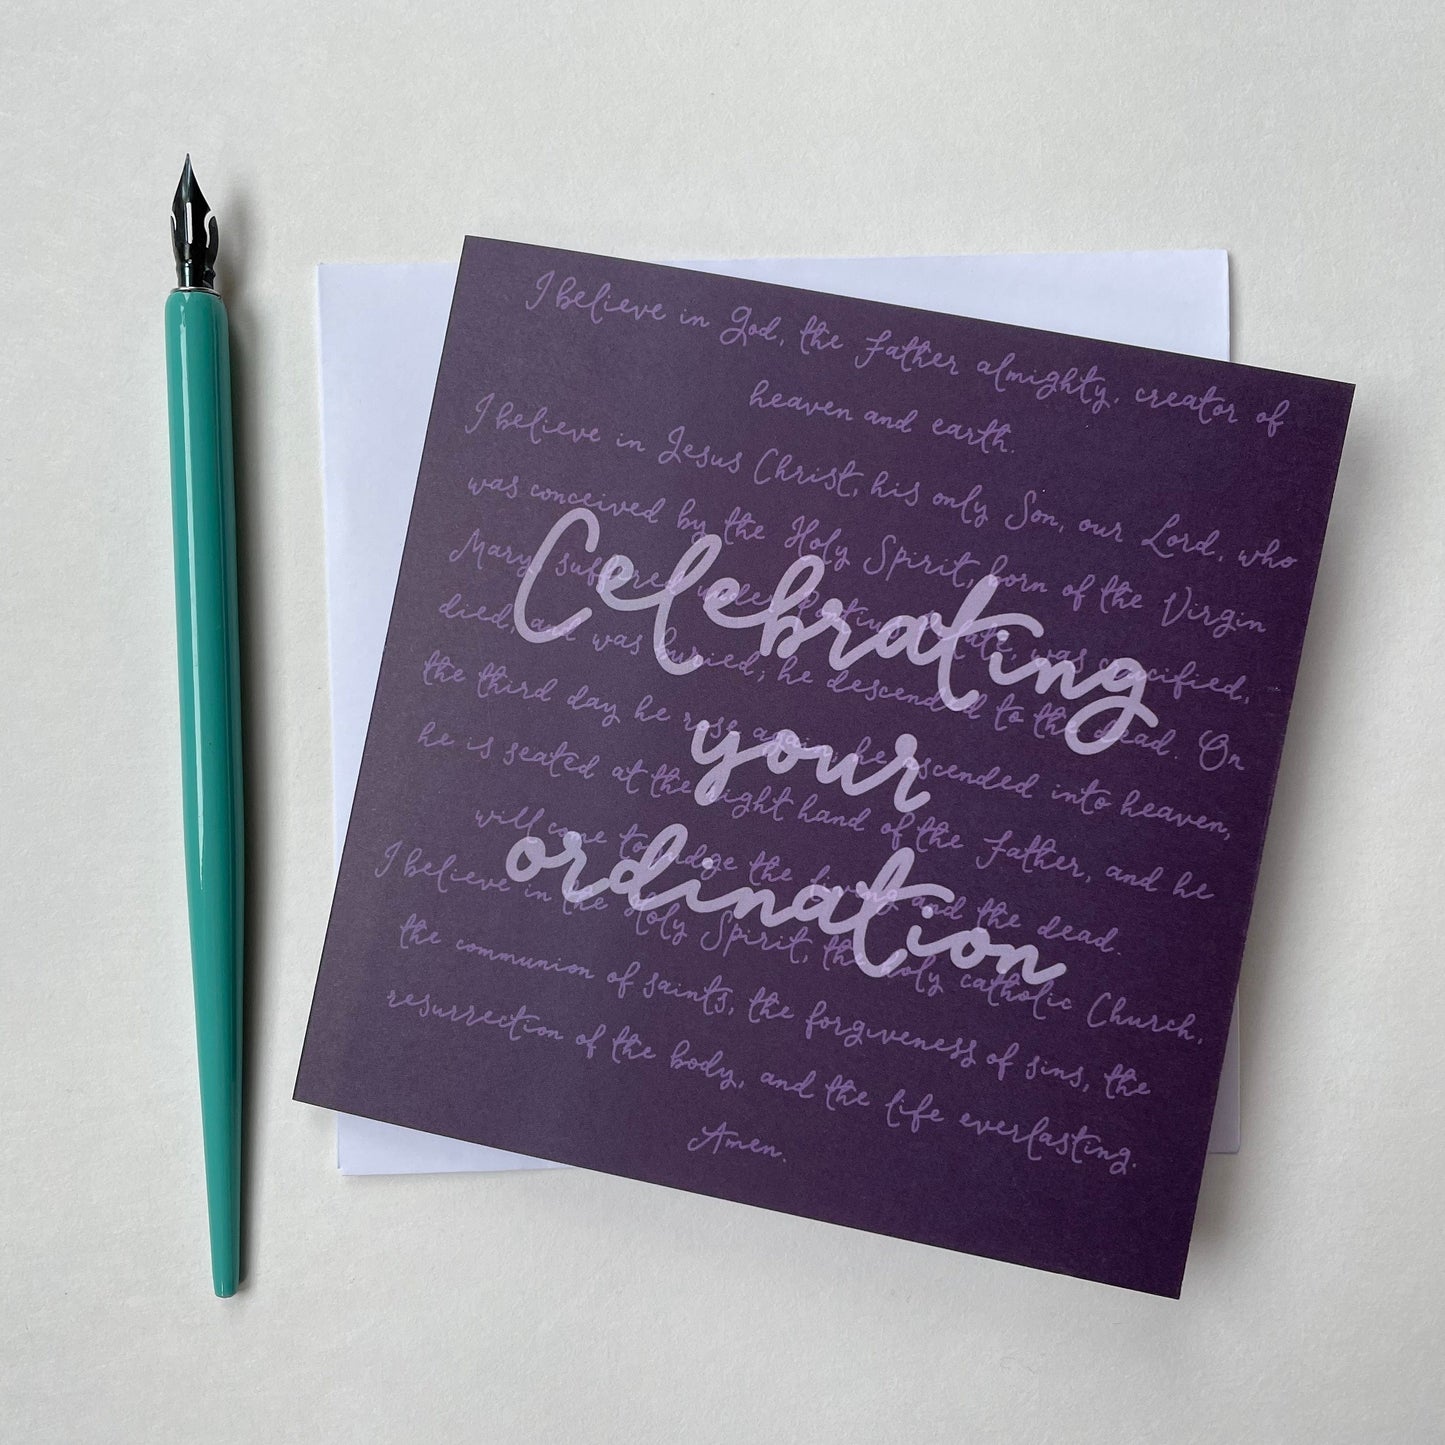 I believe in God, the Father almighty, creator of
heaven and earth.
I believe in Jesus Christ, his only Son, our Lord, who
was conceived by the Holy Spirit, born of the Virgin
Mary, suffered under Pontius Pilate, was crucified,
died, and was buried; he descended to the dead. On
the third day he rose again; he ascended into heaven,
he is seated at the right hand of the Father, and he
will come to judge the living and the dead.
I believe in the Holy Spirit, the holy catholic Church,
the communion of saints, the forgiveness of sins, the
resurrection of the body, and the life everlasting.
Amen.
Celebrating
your
ordination